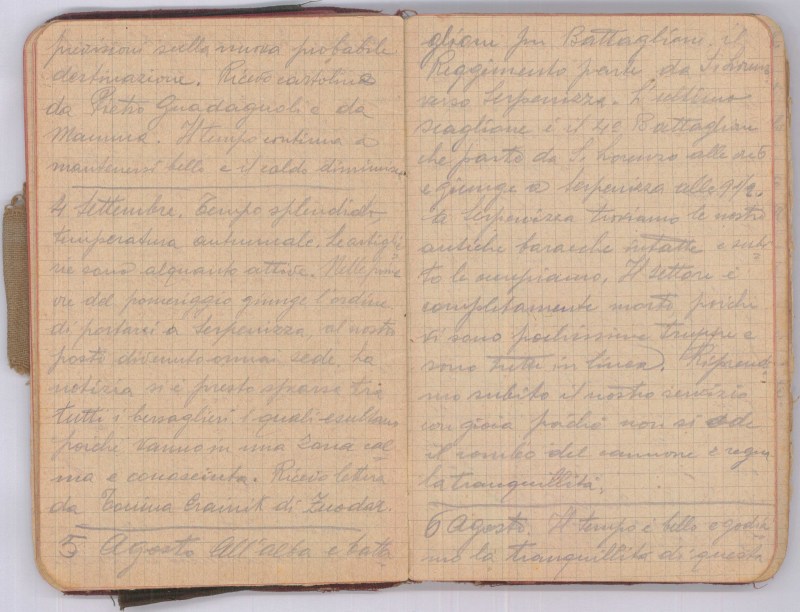 previsioni sulla nuova probabile
destinazione. Ricevo cartoline
da Pietro Guadagnoli e da
Mamma. Il tempo continua a
mantenersi bello e il caldo diminuisce
4 Settembre. Tempo splendido
temperatura autunnale. Le artiglie
rie sono alquanto attive. Nelle prime
ore del pomeriggio giunge l'ordine
di portarci a Serpenizza, al nostro
posto divenuto ormai sede. La
notizia si è presto sparsa tra
tutti i bersaglieri i quali esultano
perché vanno in una zona cal
ma e conosciuta. Ricevo lettera
da di
5 Agosto All'alba e batta
glione per Battaglione, il
Reggimento parte da S. Lorenzo
verso Serpenizza. L'ultimo
scaglione è il 40 Battaglione
che parte da S. Lorenzo alle
e giunge a Serpenizza alle 9 1/2.
A Serpenizza troviamo le nostre
antiche baracche rifatte e subi
to le occupiamo. Il settore è
completamente morto perché
vi sono pochissime truppe e
sono tutti in linea. Riprendia
mo subito il nostro servizio
con gioia poiché non si ode
il rombo del cannone e regna
la tranquillità.
6 Agosto. Il tempo è bello e godia
mo la tranquillità di questa